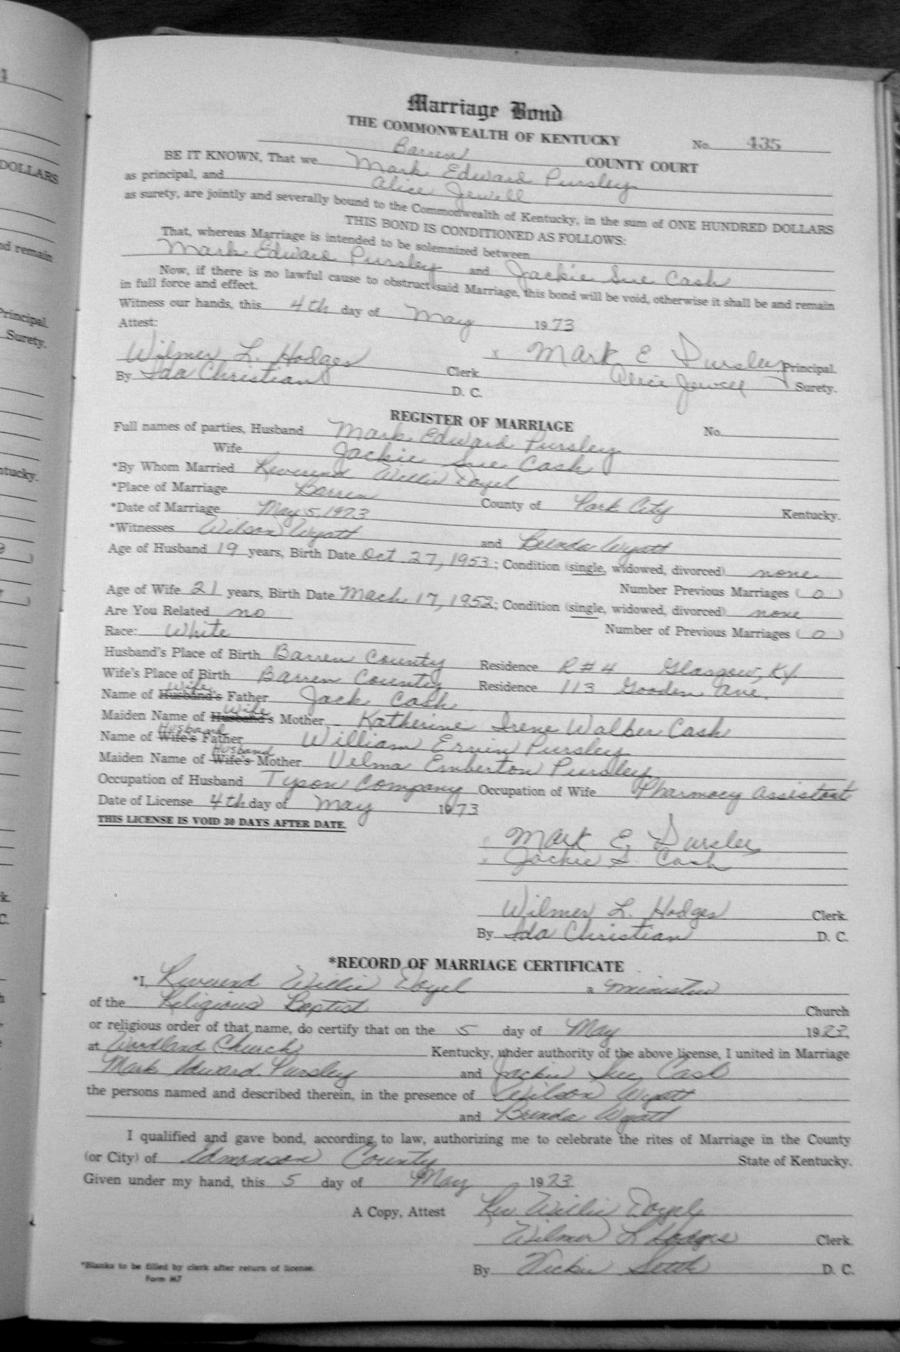 Marriage Bond
THE COMMONWEALTH OF KENTUCKY No. 435
Barren COUNTY COURT
BE IT KNOWN, That we Mark Edward Pursley
as principal, and Alice Jewell
as surety, are jointly and severally bound to the Commonwealth of Kentucky, in the sum of ONE HUNDRED DOLLARS
THIS BOND IS CONDITIONED AS FOLLOWS:
That, whereas Marriage is intended to be solemnized between
Mark Edward Pursley and Jackie Sue Cash
Now, if there is no lawful cause to obstruct said Marriage, this bond will be void, otherwise it shall be and remain
in full force and effect.
Witness our hands, this 4th day of May 1973
Attest: x Mark E Pursley Principal.
Wilmer L. Hodges Clerk Alice Jewell Surety.
By Ida Christian D. C.
REGISTER OF MARRIAGE
Full names of parties, Husband Mark Edward Pursley No.
Wife Jackie Sue Cash
*By Whom Married Reverend Willie Doyel
*Place of Marriage Barren County of Park City Kentucky.
*Date of Marriage May 5, 1973
*Witnesses Wilson Wyatt and Brenda Wyatt
Age of Husband 19 years, Birth Date Oct. 27, 1953; Condition (single, widowed, divorced) none
Number Previous Marriages (0)
Age of Wife 21 years, Birth Date Mach 17, 1952; Condition (single, widowed, divorced) none
Are You Related no Number of Previous Marriages (0)
Race: White
Husband's Place of Birth Barren County Residence R#4 Glasgow, Ky
Wife's Place of Birth Barren County Residence 113 Gooden Ave.
Name of Husband's Wife's Father Jack Cash
Maiden Name of Husband's Wife Mother Katherine Irene Walber Cash
Name of Wife's Husband Father William Ervin Pursley
Maiden Name of Wife's Husband Mother Velma Emberton Pursley
Occupation of Husband Tyson Company Occupation of Wife Pharmacy Assistant
Date of License 4th day of May 1973
THIS LICENSE IS VOID 30 DAYS AFTER DATE.
Mark E. Pursley
Jackie S. Cash
Wilmer L. Hodges Clerk
By Ida Christian D. C.
*RECORD OF MARRIAGE CERTIFICATE
*I, Reverend Willie Doyel a minister
of the Religious Baptist Church
or religious order of that name, do certify that on the 5 day of May 1973,
at Woodland Church Kentucky, under authority of the above license, I united in Marriage
Mark Edward Pursley and Jackie Sue Cash
the persons named and described therein, in the presence of Wilson Wyatt
and Brenda Wyatt
I qualified and gave bond, according to law, authorizing me to celebrate the rites of Marriage in the County
(or City) of Edmonson County State of Kentucky.
Given under my hand, this 5 day of May 1973
A Copy, Attest Rev Willie Doyel
Wilmer L Hodges Clerk
By Vickie D. C.
*Blanks to be filled by clerk after return of license.
Form M7